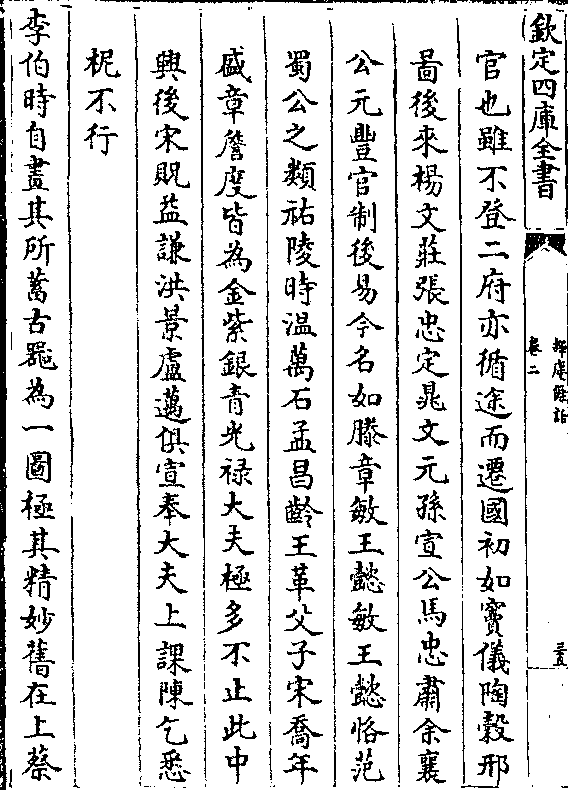 欽定四庫全書
揮麈餘話
卷二
三五
官也雖不登二府亦循途而遷國初如竇儀陶穀邢
昺後來楊文莊張忠定晁文元孫宣公馬忠肅余襄
公元豐官制後易今名如滕章敏王懿敏王懿恪范
蜀公之類祐陵時溫萬石孟昌齡王革父子宋喬年
盛章詹度皆為金紫銀青光禄大夫極多不止此中
興後宋貺益謙洪景盧邁俱宣奉大夫上課陳乞悉
柅不行
李伯時自畫其所蓄古器為一圖極其精妙舊在上蔡